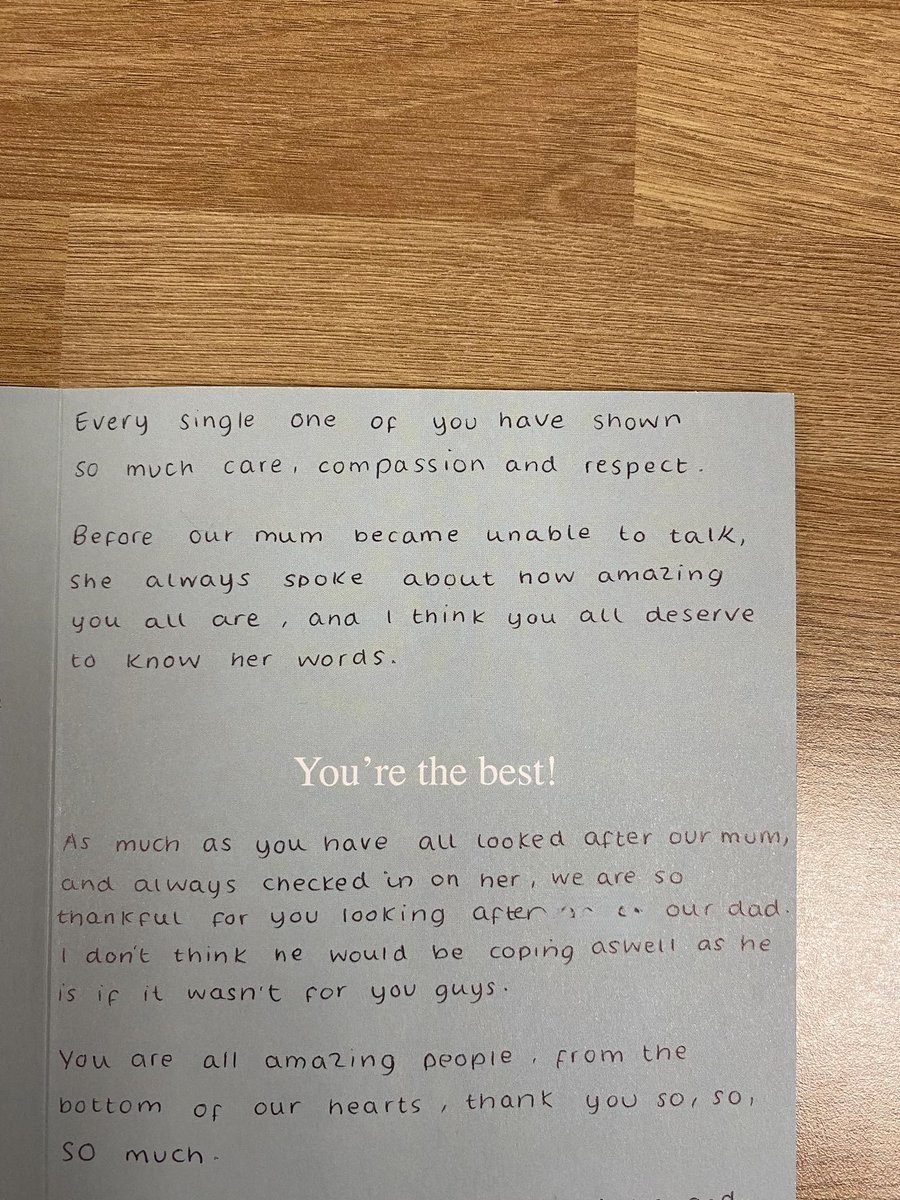 Every single one of you have shown
so much care, compassion and respect.
Before our mum became unable to talk,
she always spoke about how amazing
you all are, and I think you all deserve
to know her words.
You're the best!
As much as you have all looked after our mum,
and always checked in on her, we are so
thankful for you looking after our dad.
I don't think he would be coping aswell as he
is if it wasn't for you guys.
You are all amazing people, from the
bottom of our hearts, thank you so, so,
so much.